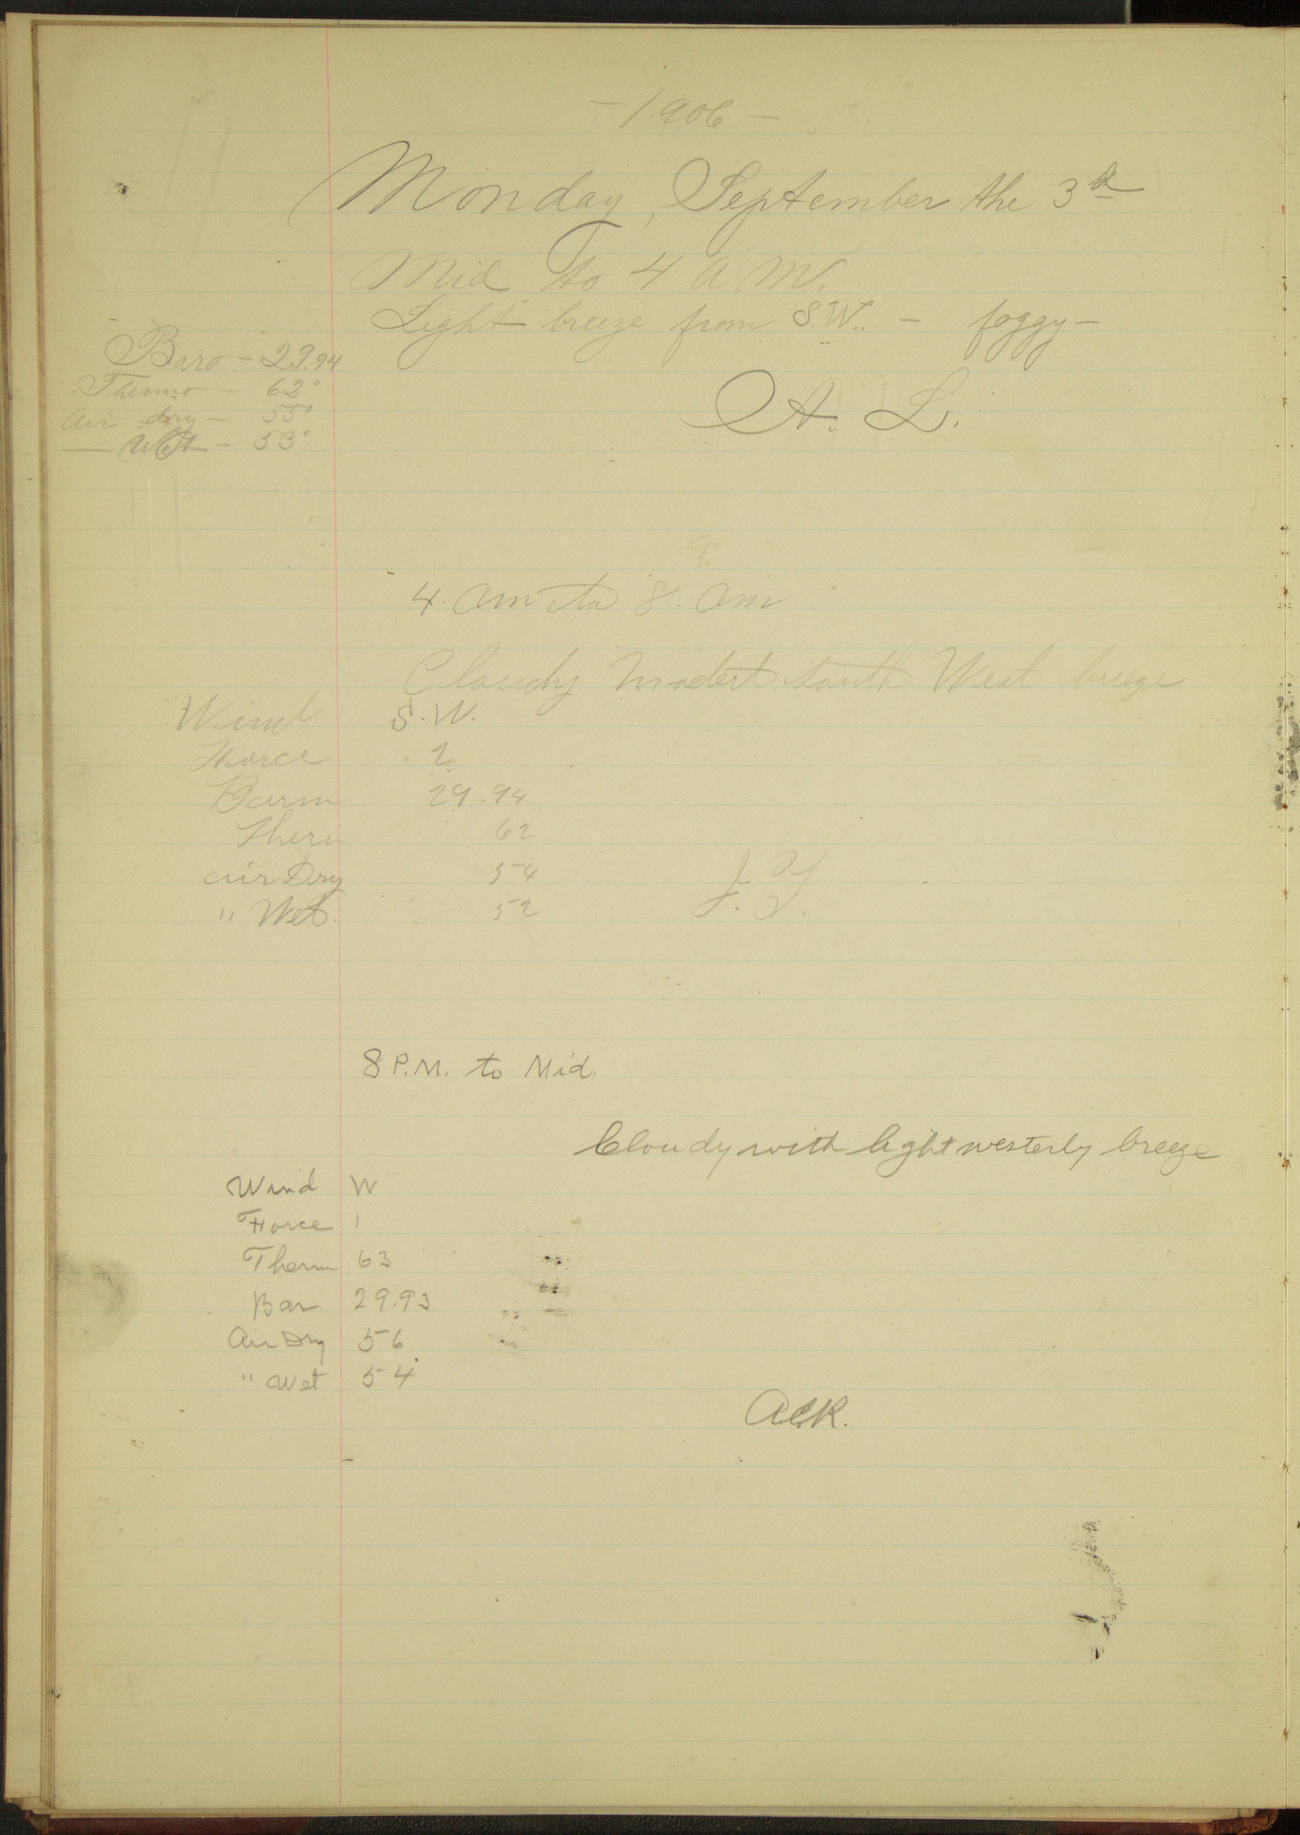 - 1906 -
Monday, September the 3d
Mid to 4 A.M.
Light breeze from S.W. - foggy -
Baro - 29.94
Thermo - 62°
Air dry - 55°
— Wet - 53°
A. L.
4. am to 8. am
Cloudy Modert South West breeze
Wind S.W.
Force 2
Barm 29.94
Ther 62
air Dry 54
" Wet 52
8 P.M. to Mid.
Cloudy with light westerly breeze
Wind W
Force 1
Therm 63
Bar 29.93
Air Dry 56
" Wet 54